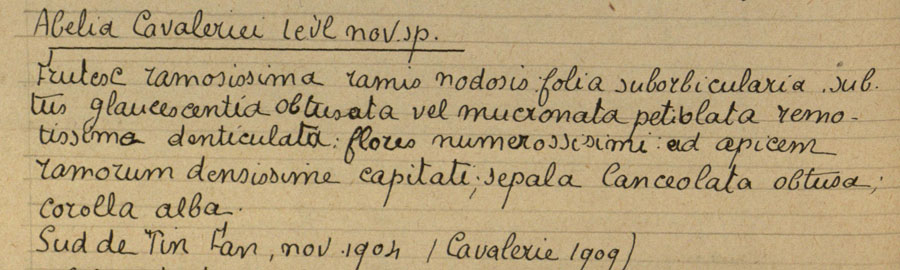 Abelia Cavaleriei Levl nov. sp.
Frutesc ramosissima ramis nodosis folia suborbicularia sub-
tus glaucescentia obtusata vel mucronata petiolata remo-
tissima denticulata: flores numerossisimi ad apicem
ramorum densissime capitati; sepala lanceolata obtusa;
corolla alba.
Sud de Tin Fan, nov. 1904 (Cavalerie 1909)